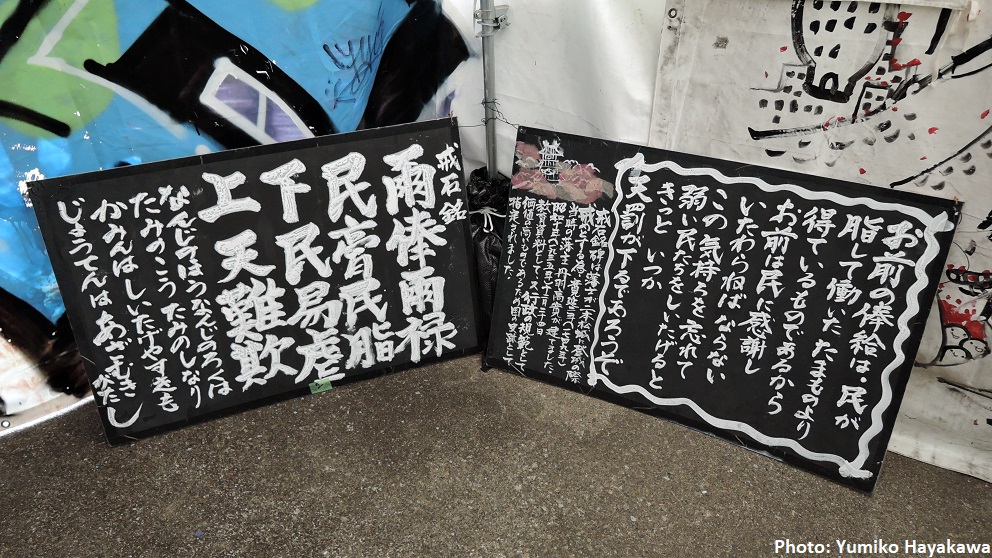 戒石銘
雨俸雨禄
民膏民脂
下民易虐
上天難欺
なんじのほうなんじのろくは
たみのこうたみのしなり
かみんはしいたげやすきも
じょうてんはあざむきがたし
お前の俸給は・民が
脂して働いたたまものより
得ているものであるから
お前は民に感謝し
いたわらねばならない
この気持ちを忘れて
弱い民たちをしいたげると
きっと いつか
天罰が下るであろうぞ
戒石銘碑は藩士が二本松城登城の際
戒めとする為に
当時の藩主 丹羽高寛が建てました。
昭和十年(一九三五年)十二月二十四日
教育資料として、又、行政の規範として
価値の高いものであるため国の史跡として
指定されました。
Photo: Yumiko Hayakawa